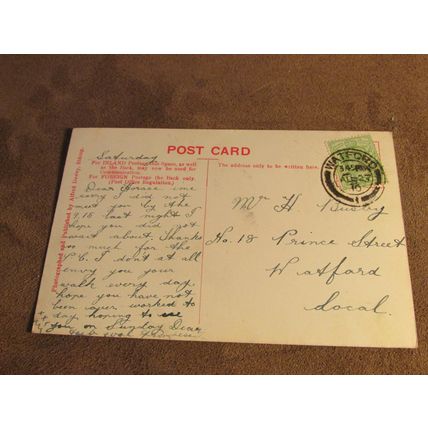 POST CARD
Photographed and Published by Alfred Tilney, Tring.
For INLAND Postage this Space, as well
as the Back, may now be used for
Communication.
For FOREIGN Postage the Back only.
(Post Office Regulation.)
The address only to be written here.
WATFORD
Saturday
Dear Horace
sorry I did not
meet you by the
9.15 last night I
hope you did not
wait about. Thanks
so much for the
P.C. I don't at all
envy you your
walk every day,
hope you have not
been over worked to
day hoping to see
you on Sunday Dear
Mr H Busby
No. 18 Prince Street
Watford
Local.